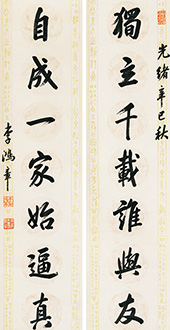 光緒辛巳秋
獨主千載誰與友
自成一家始逼真
李鴻章